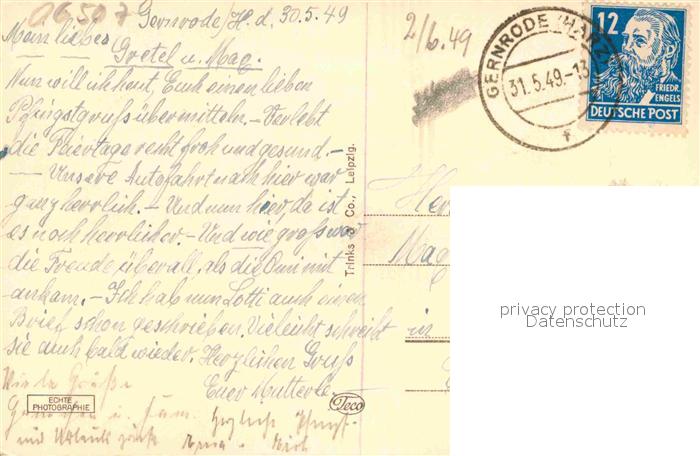 Gernrode/H. d. 30.5.49
Mein liebes
Gretel u. Mag.
Nun will ich heut, Euch einen lieben
Pfingstgruß übermitteln. - Verlebt
die Feiertage recht froh und gesund. -
- Unsere Autofahrt nach hier war
ganz herrlich. - Und nun hier, da ist
es noch herrlicher. - Und wie groß war
die Freude überall, als die Omi mit
ankam. - Ich hab nun Lotti auch einen
Brief schon geschrieben. Vieleicht schreibt
sie auch bald wieder. Herzlichen Gruß
Euer Mutterle.
Viele Grüße
u. Fam. herzliche Pfingst-
und Urlaubsgrüße
ECHTE
PHOTOGRAPHIE
Trinks & Co., Leipzig.
Teco
2/6.49
GERNRODE (HARZ)
31.5.49.-13
f
12
FRIEDR.
ENGELS
DEUTSCHE POST
Her
Mag
in
privacy protection
Datenschutz